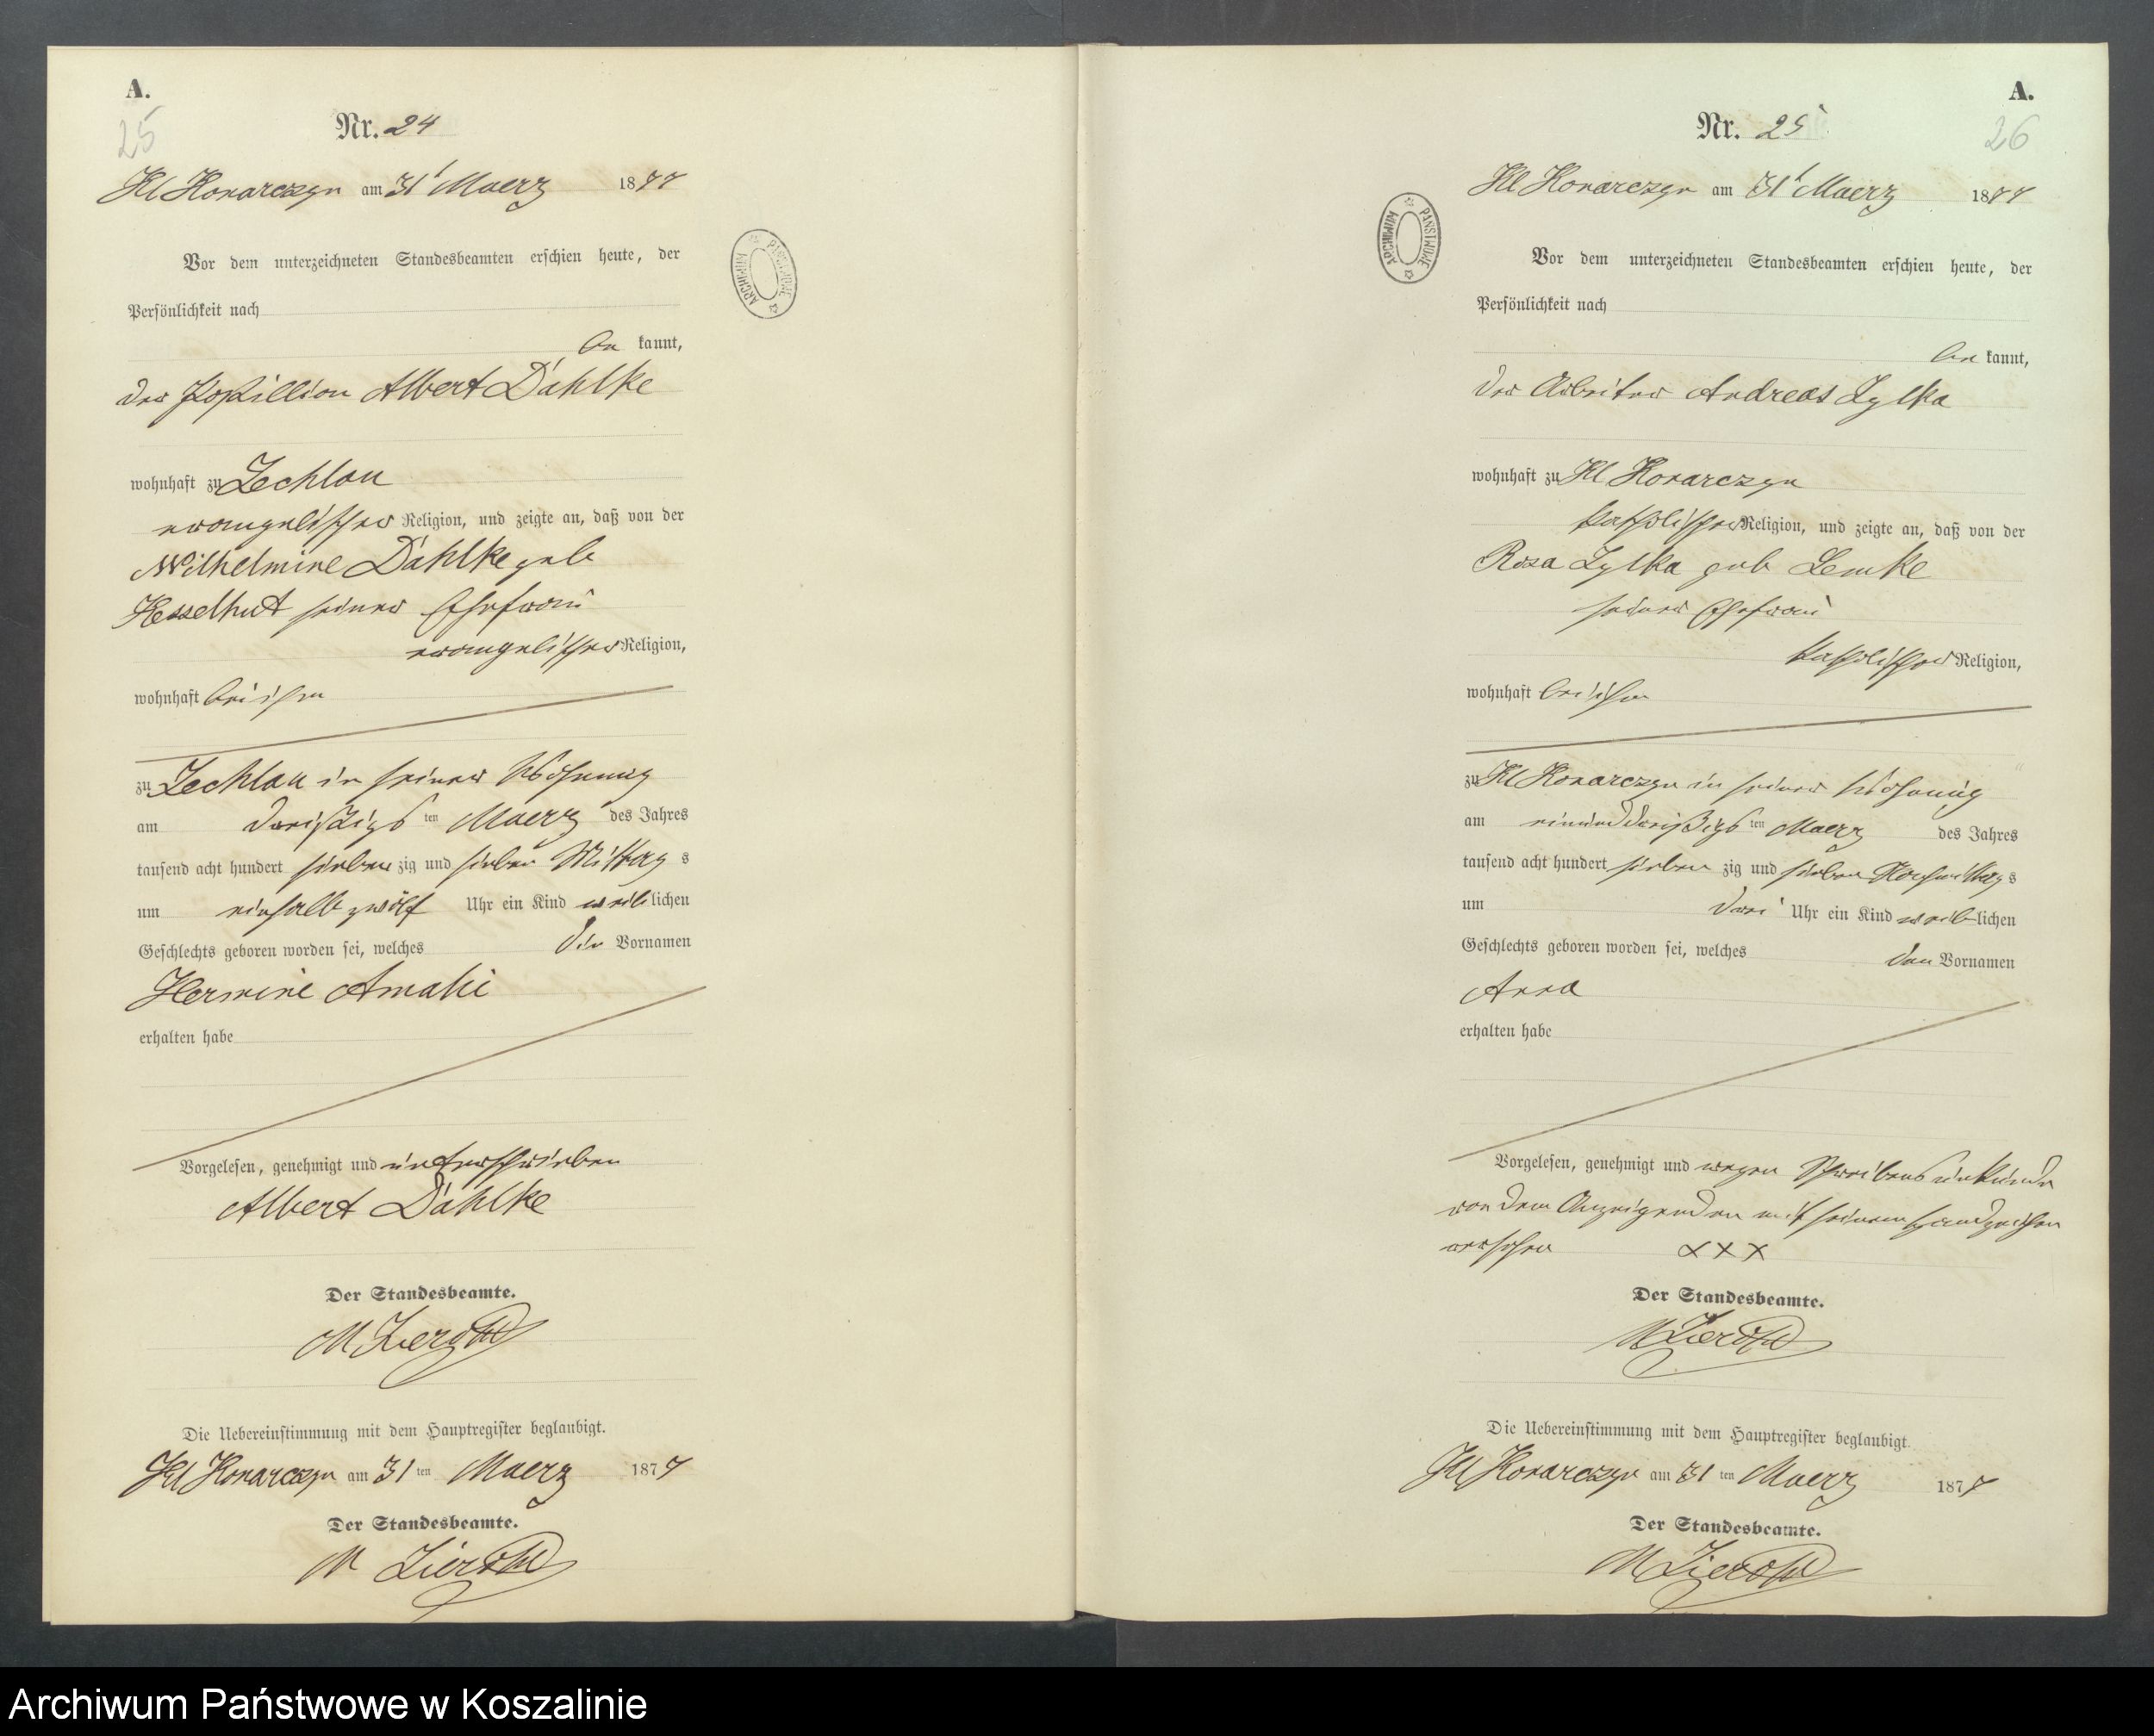 A.
25
Nr. 24
Kl Konarczyn am 31' Maerz 1877
Vor dem unterzeichneten Standesbeamten erschien heute, der
Persönlichkeit nach
be kannt,
der Postillion Albert Dahlke
wohnhaft zu Zechlau
evangelischer Religion, und zeigte an, daß von der
Wilhelmine Dahlke geb
Hesselhut seiner Ehefrau
evangelischer Religion,
wohnhaft bei ihm
zu Zechlau in seiner Wohnung
am dreißigs ten Maerz des Jahres
tausend acht hundert sieben zig und sieben Mittag s
um einhalb zwölf Uhr ein Kind weib lichen
Geschlechts geboren worden sei, welches die Vornamen
Hermine
erhalten habe
Vorgelesen, genehmigt und unterschrieben
Albert Dahlke
Der Standesbeamte.
M
Die Uebereinstimmung mit dem Hauptregister beglaubigt.
Kl Konarczyn am 31 ten Maerz 1877
Der Standesbeamte.
M
ARCHIWUM PAŃSTWOWE
A.
26
Nr. 25
Kl Konarczyn am 31' Maerz 1877
Vor dem unterzeichneten Standesbeamten erschien heute, der
Persönlichkeit nach
be kannt,
der Arbeiter Andreas Zylka
wohnhaft zu Kl Konarczyn
katholischer Religion, und zeigte an, daß von der
Rosa Zylka geb Lemke
seiner Ehefrau
katholischer Religion,
wohnhaft bei ihm
zu Kl Konarczyn in seiner Wohnung
am einunddreißigs ten Maerz des Jahres
tausend acht hundert sieben zig und sieben Nachmittag s
um drei Uhr ein Kind weib lichen
Geschlechts geboren worden sei, welches den Vornamen
Anna
erhalten habe
Vorgelesen, genehmigt und wegen Schreibensunkunde
von dem Anzeigenden mit seinem Handzeichen
versehen XXX
Der Standesbeamte.
M
Die Uebereinstimmung mit dem Hauptregister beglaubigt.
Kl Konarczyn am 31 ten Maerz 1877
Der Standesbeamte.
M
ARCHIWUM PAŃSTWOWE
Archiwum Państwowe w Koszalinie